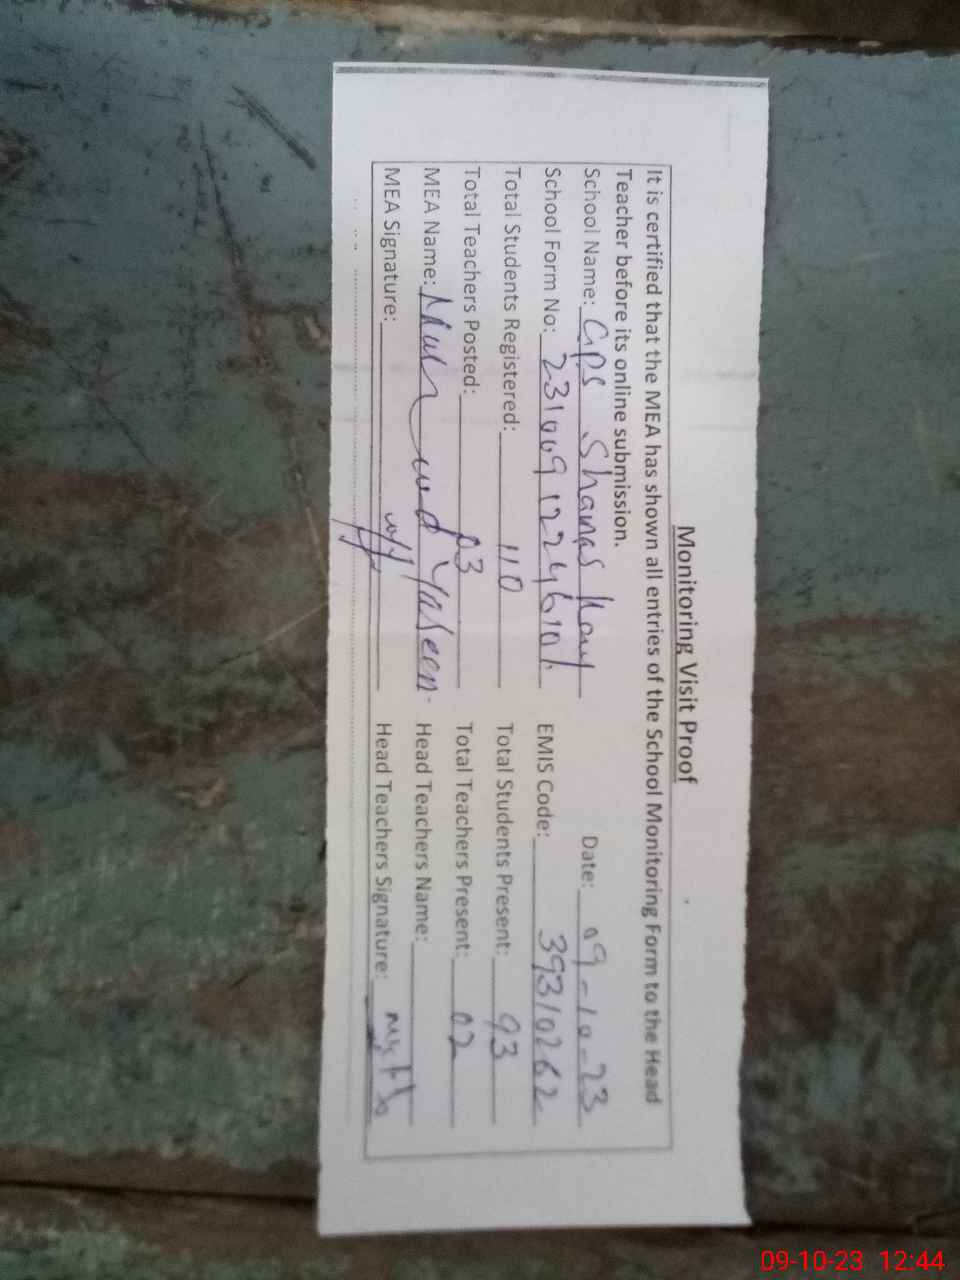 Monitoring Visit Proof
It is certified that the MEA has shown all entries of the School Monitoring Form to the Head
Teacher before its online submission.
School Name: GPS Shamas Date: 09-10-23
School Form No: EMIS Code: 39310262
Total Students Registered: 110 Total Students Present: 93
Total Teachers Posted: 03 Total Teachers Present: 02
MEA Name: Yaseen Head Teachers Name:
MEA Signature: Head Teachers Signature:
09-10-23 12:44